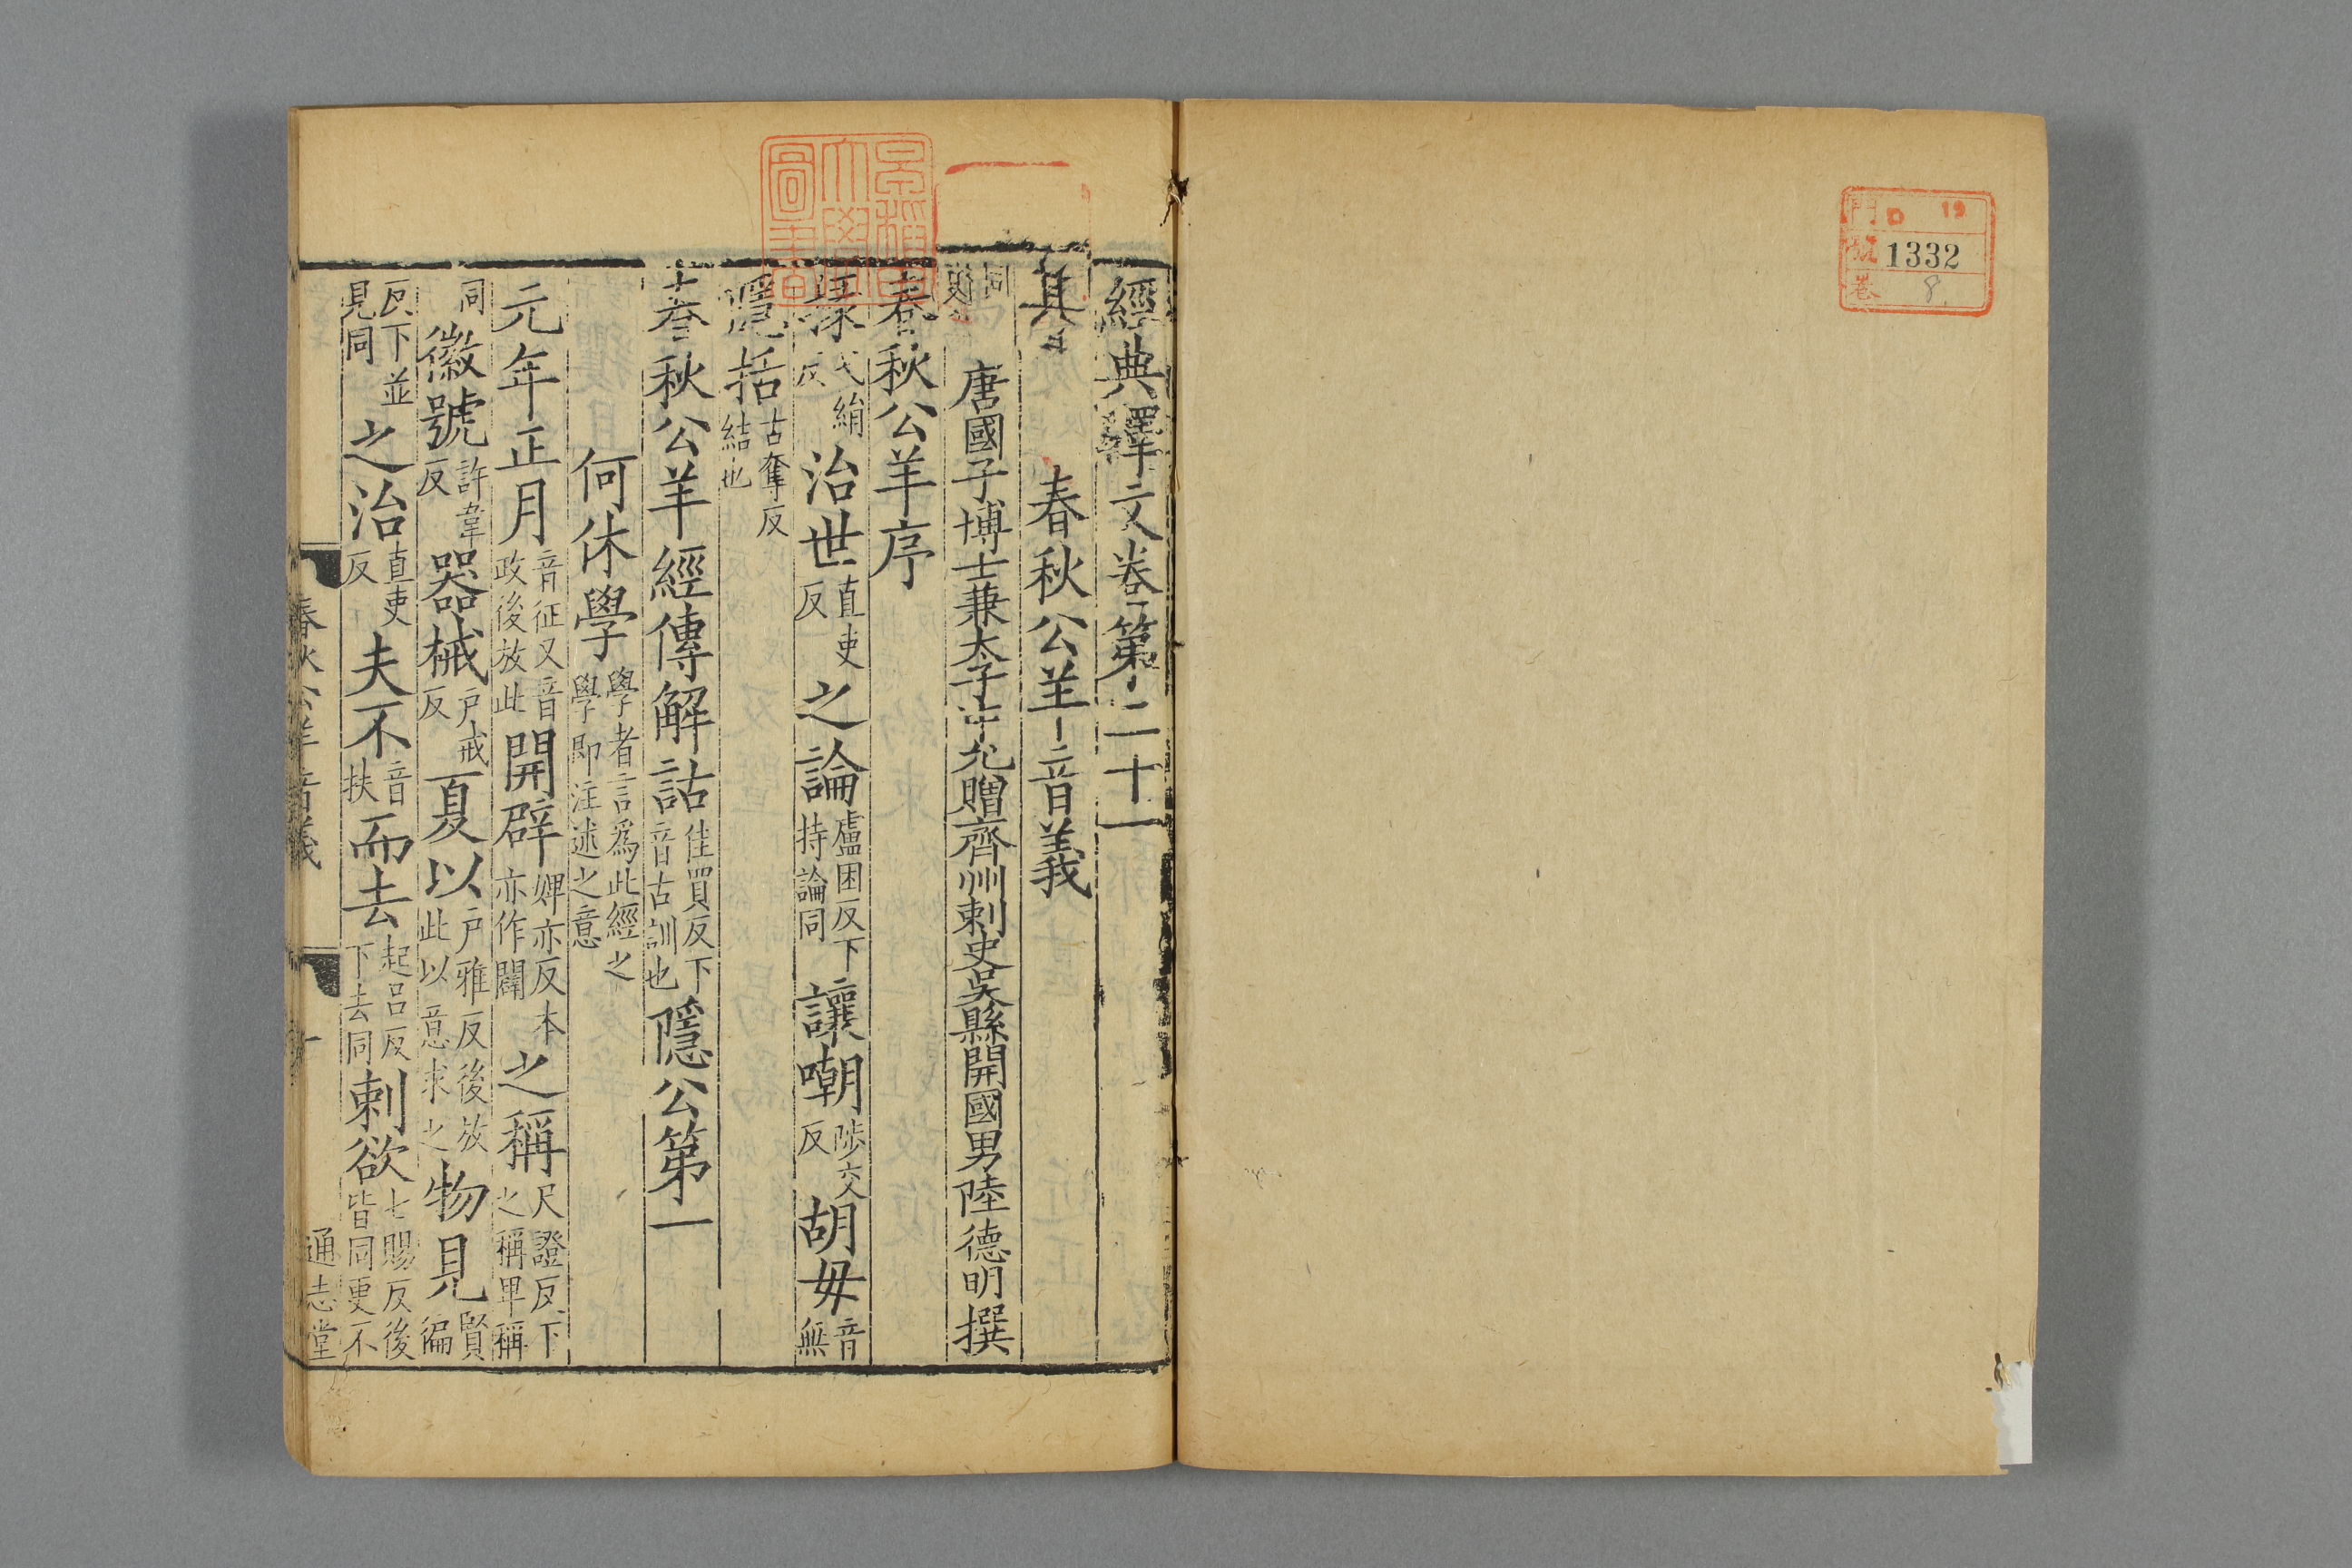 門 D 19
號 1332
卷 8.
經典釋文卷第二十一
其
春秋公羊音義
同
唐國子博士兼太子中允贈齊州刺史吳縣開國男陸德明撰
春秋公羊序
掾弋絹反治世直吏反之論盧困反下持論同讓嘲陟交反胡毋音無
隱括古奪反結也
春秋公羊經傳解詁佳買反下音古訓也隱公第一
何休學學者言爲此經之學即注述之意
元年正月音征又音政後放此開辟婢亦反本亦作闢之稱尺證反下之稱卑稱
同徽號許韋反器械戶戒反夏以戶雅反後放此以意求之物見賢徧
反下並見同之治直吏反夫不音扶而去起呂反下去同刺欲七賜反後皆同更不
春秋公羊音義 一 通志堂